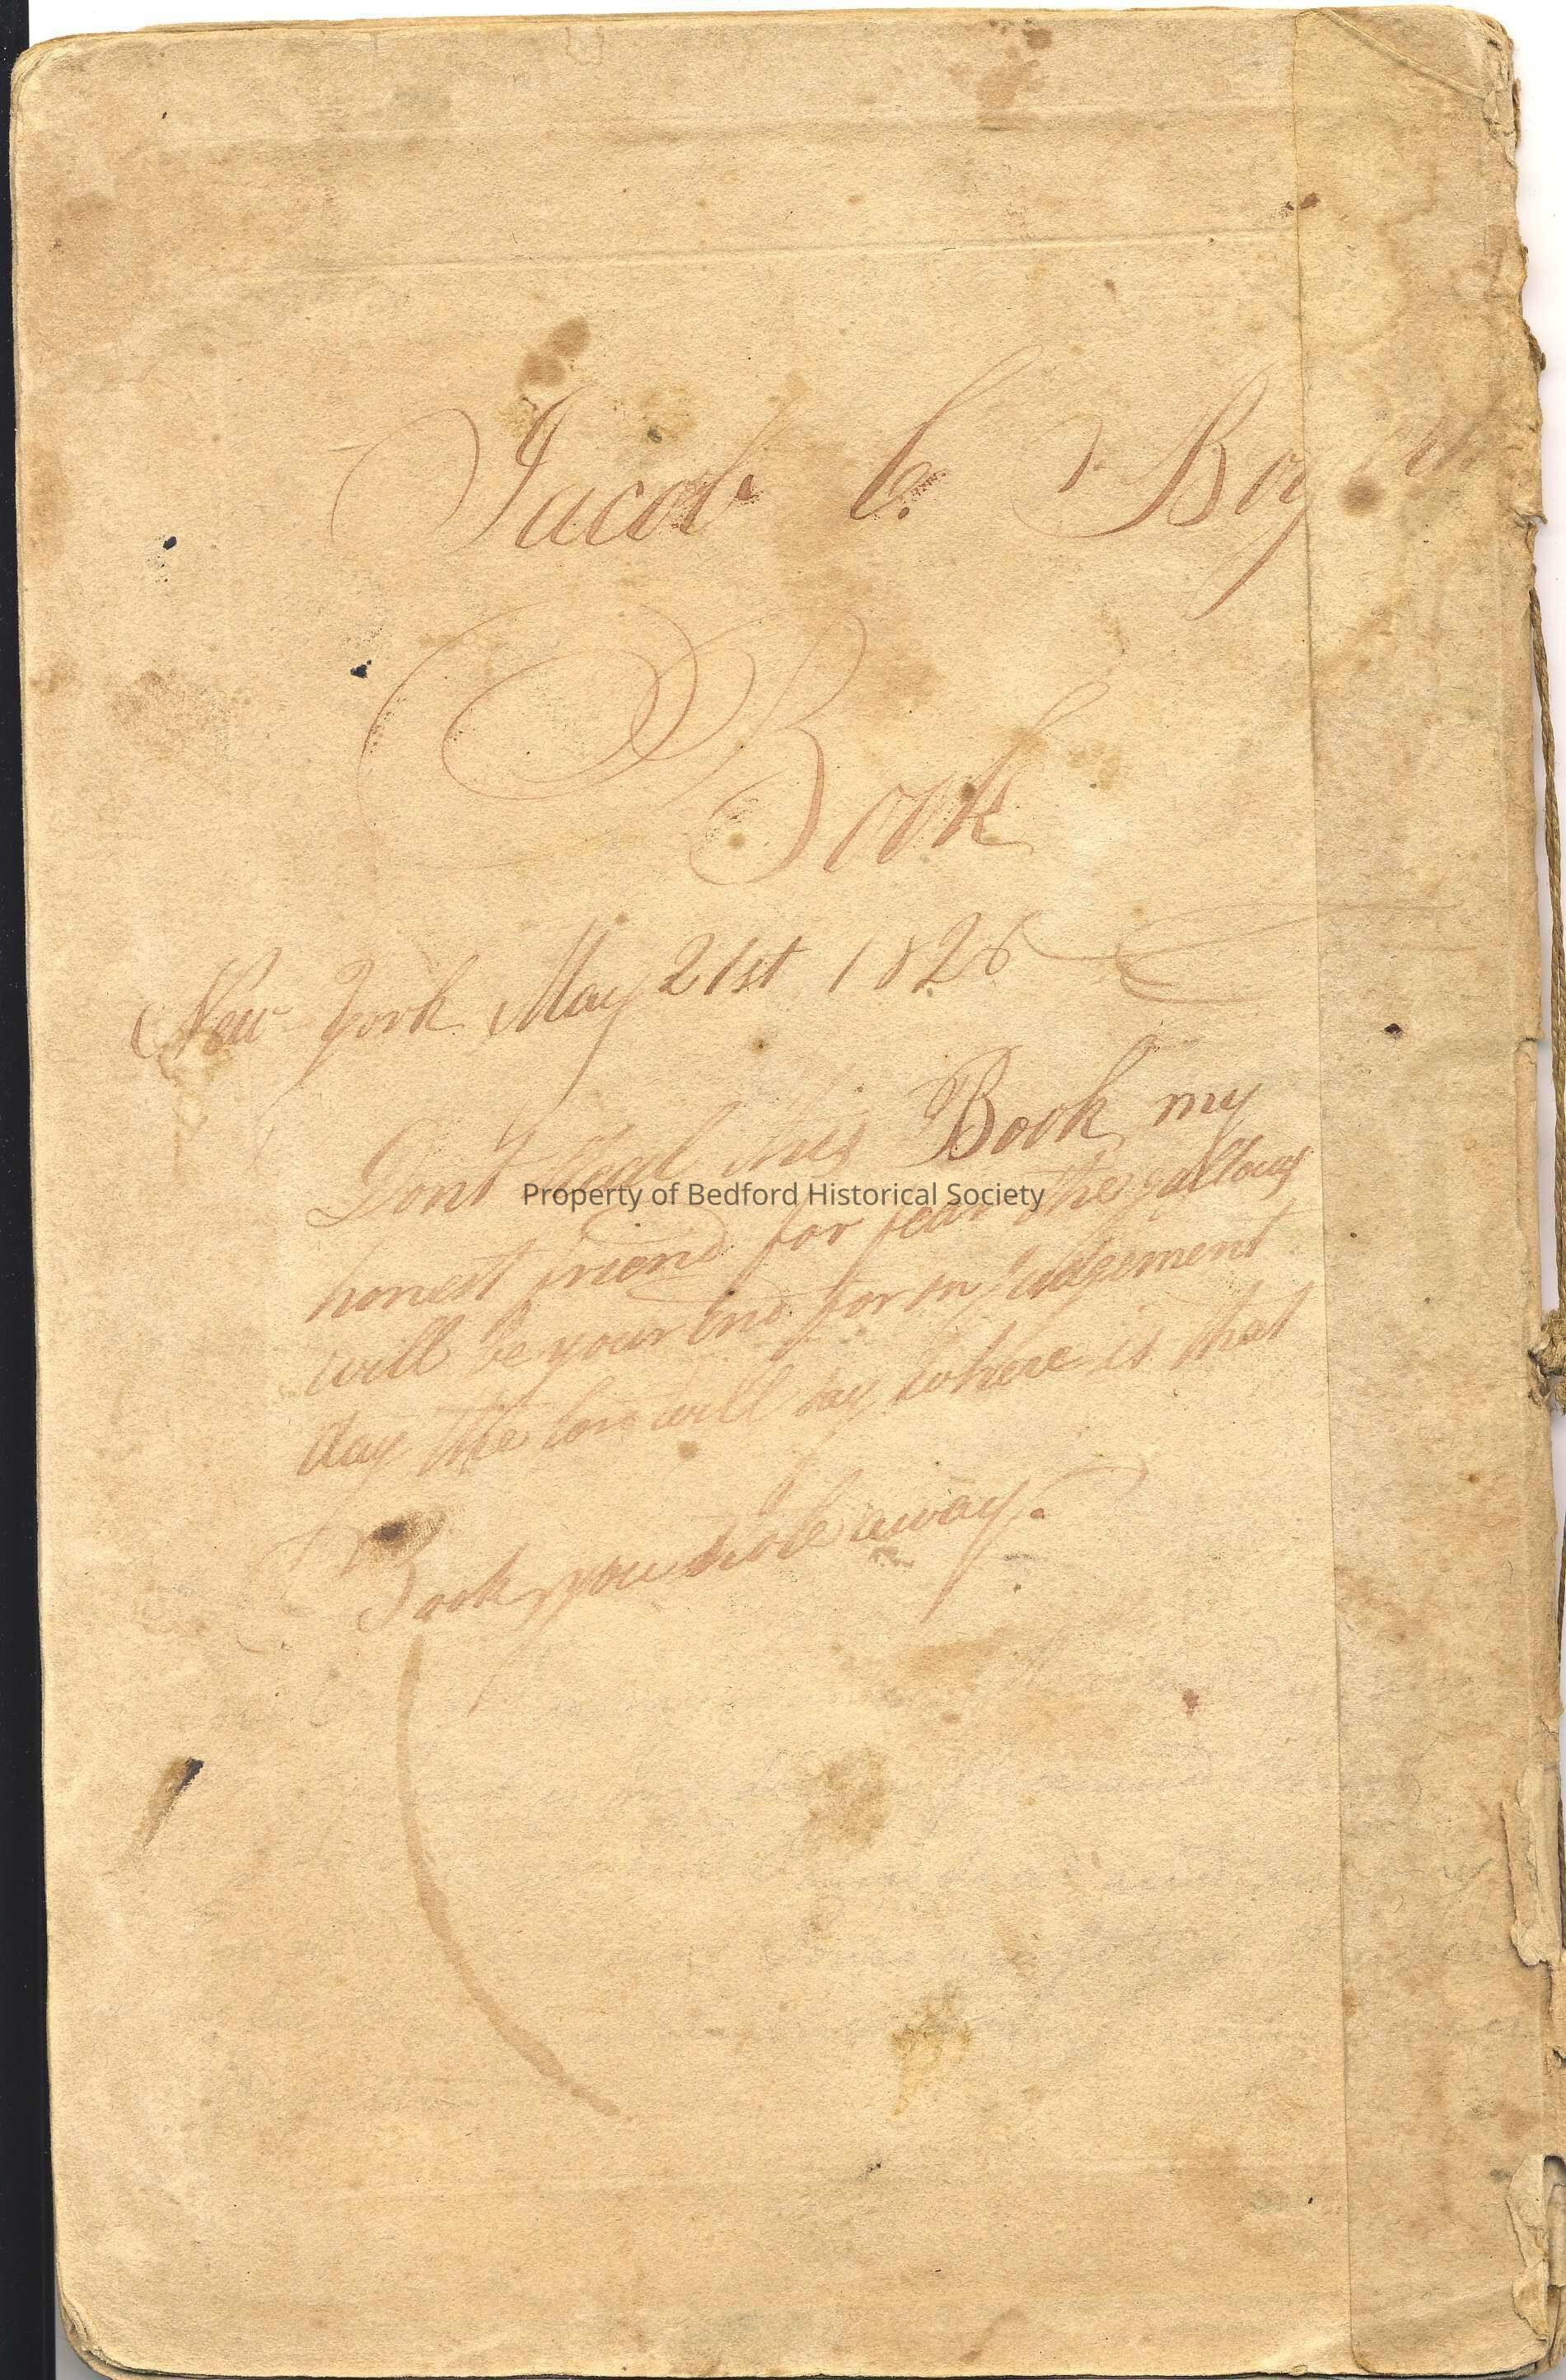 Jacob C. Boy
Book
New York May 21st 1826
Dont steal this Book my
Property of Bedford Historical Society
honest friend for fear the gallows
will be your End for in judgement
day the lord will say where is that
Book you stole away.